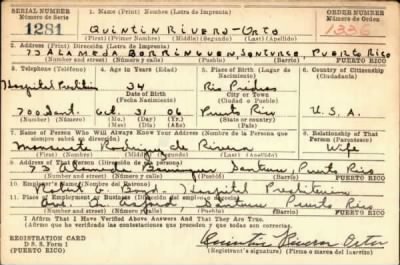 SERIAL NUMBER
Número de Serie
1. Name (Print) Nombre (Letra de Imprenta)
ORDER NUMBER
Número de Orden
1281
QUINTIN RIVERO-ORTO
1336
(First) (Primer Nombre) (Middle) (Segundo) (Last) (Apellido)
2. Address (Print) Dirección (Letra de Imprenta)
73 ALAMEDA BERRINGUEN, SANTURCE, PUERTO RICO
(Number and street) (Número y calle) (Town) (Pueblo) (Barrio) PUERTO RICO
3. Telephone (Teléfono)
4. Age in Years (Edad)
5. Place of Birth (Lugar de Nacimiento)
6. Country of Citizenship (Ciudadanía)
Hospital
34
Rio Piedras
Date of Birth
(Fecha Nacimiento)
City or Town
(Ciudad o Pueblo)
700 Sant.
Oct. 31 06
Puerto Rico
U. S. A.
(Number) (Número)
(Mo.) (Day) (Yr.)
(Mes) (Día) (Año)
(State or country)
(Estado o país)
7. Name of Person Who Will Always Know Your Address (Nombre de la Persona que siempre sabrá su dirección)
8. Relationship of That Person (Parentesco)
Rodriguez de Rivero
Wife
(First) (Nombre) (Middle) (Segundo) (Last) (Apellido)
9. Address of That Person (Dirección de esa persona)
73 Alameda Santurce, Puerto Rico
(Number and street) (Número y calle) (Town) (Pueblo) (Barrio) PUERTO RICO
10. Employer's Name (Nombre del Patrono)
Hospital
11. Place of Employment or Business (Dirección del empleo o negocio)
Ave. Santurce Puerto Rico
(Number and street) (Número y calle) (Town) (Pueblo) (Barrio) PUERTO RICO
I Affirm That I Have Verified Above Answers And That They Are True.
(Afirmo que he verificado las contestaciones que preceden y que todas son correctas.)
REGISTRATION CARD
D. S. S. Form 1
(PUERTO RICO)
Quintin Rivero Orto
(Registrant's signature) (Firma o marca del inscrito)